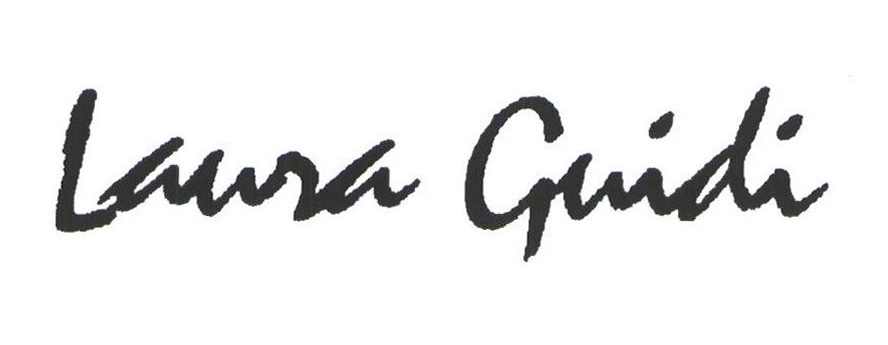 Laura Guidi